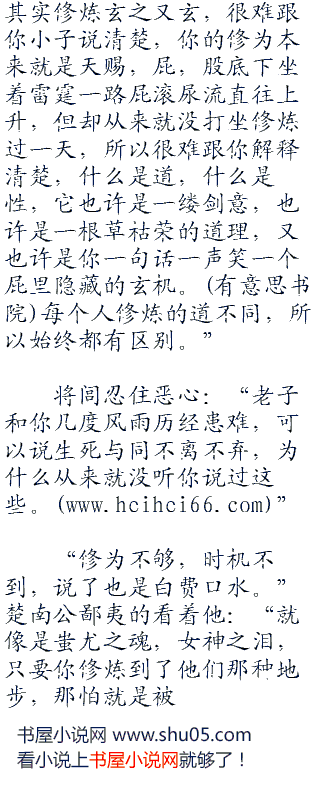 其实修炼玄之又玄，很难跟
你小子说清楚，你的修为本
来就是天赐，屁，股底下坐
着雷霆一路屁滚尿流直往上
升，但却从来就没打坐修炼
过一天，所以很难跟你解释
清楚，什么是道，什么是
性，它也许是一缕剑意，也
许是一根草祜荣的道理，又
也许是你一句话一声笑一个
屁里隐藏的玄机。(有意思书
院)每个人修炼的道不同，所
以始终都有区别。”
将闾忍住恶心：“老子
和你几度风雨历经患难，可
以说生死与同不离不弃，为
什么从来就没听你说过这
些。(www.hcihci66.com)”
“修为不够，时机不
到，说了也是白费口水。”
楚南公鄙夷的看着他：“就
像是蚩尤之魂，女神之泪，
只要你修炼到了他们那种地
步，那怕就是被
书屋小说网 www.shu05.com
看小说上书屋小说网就够了！